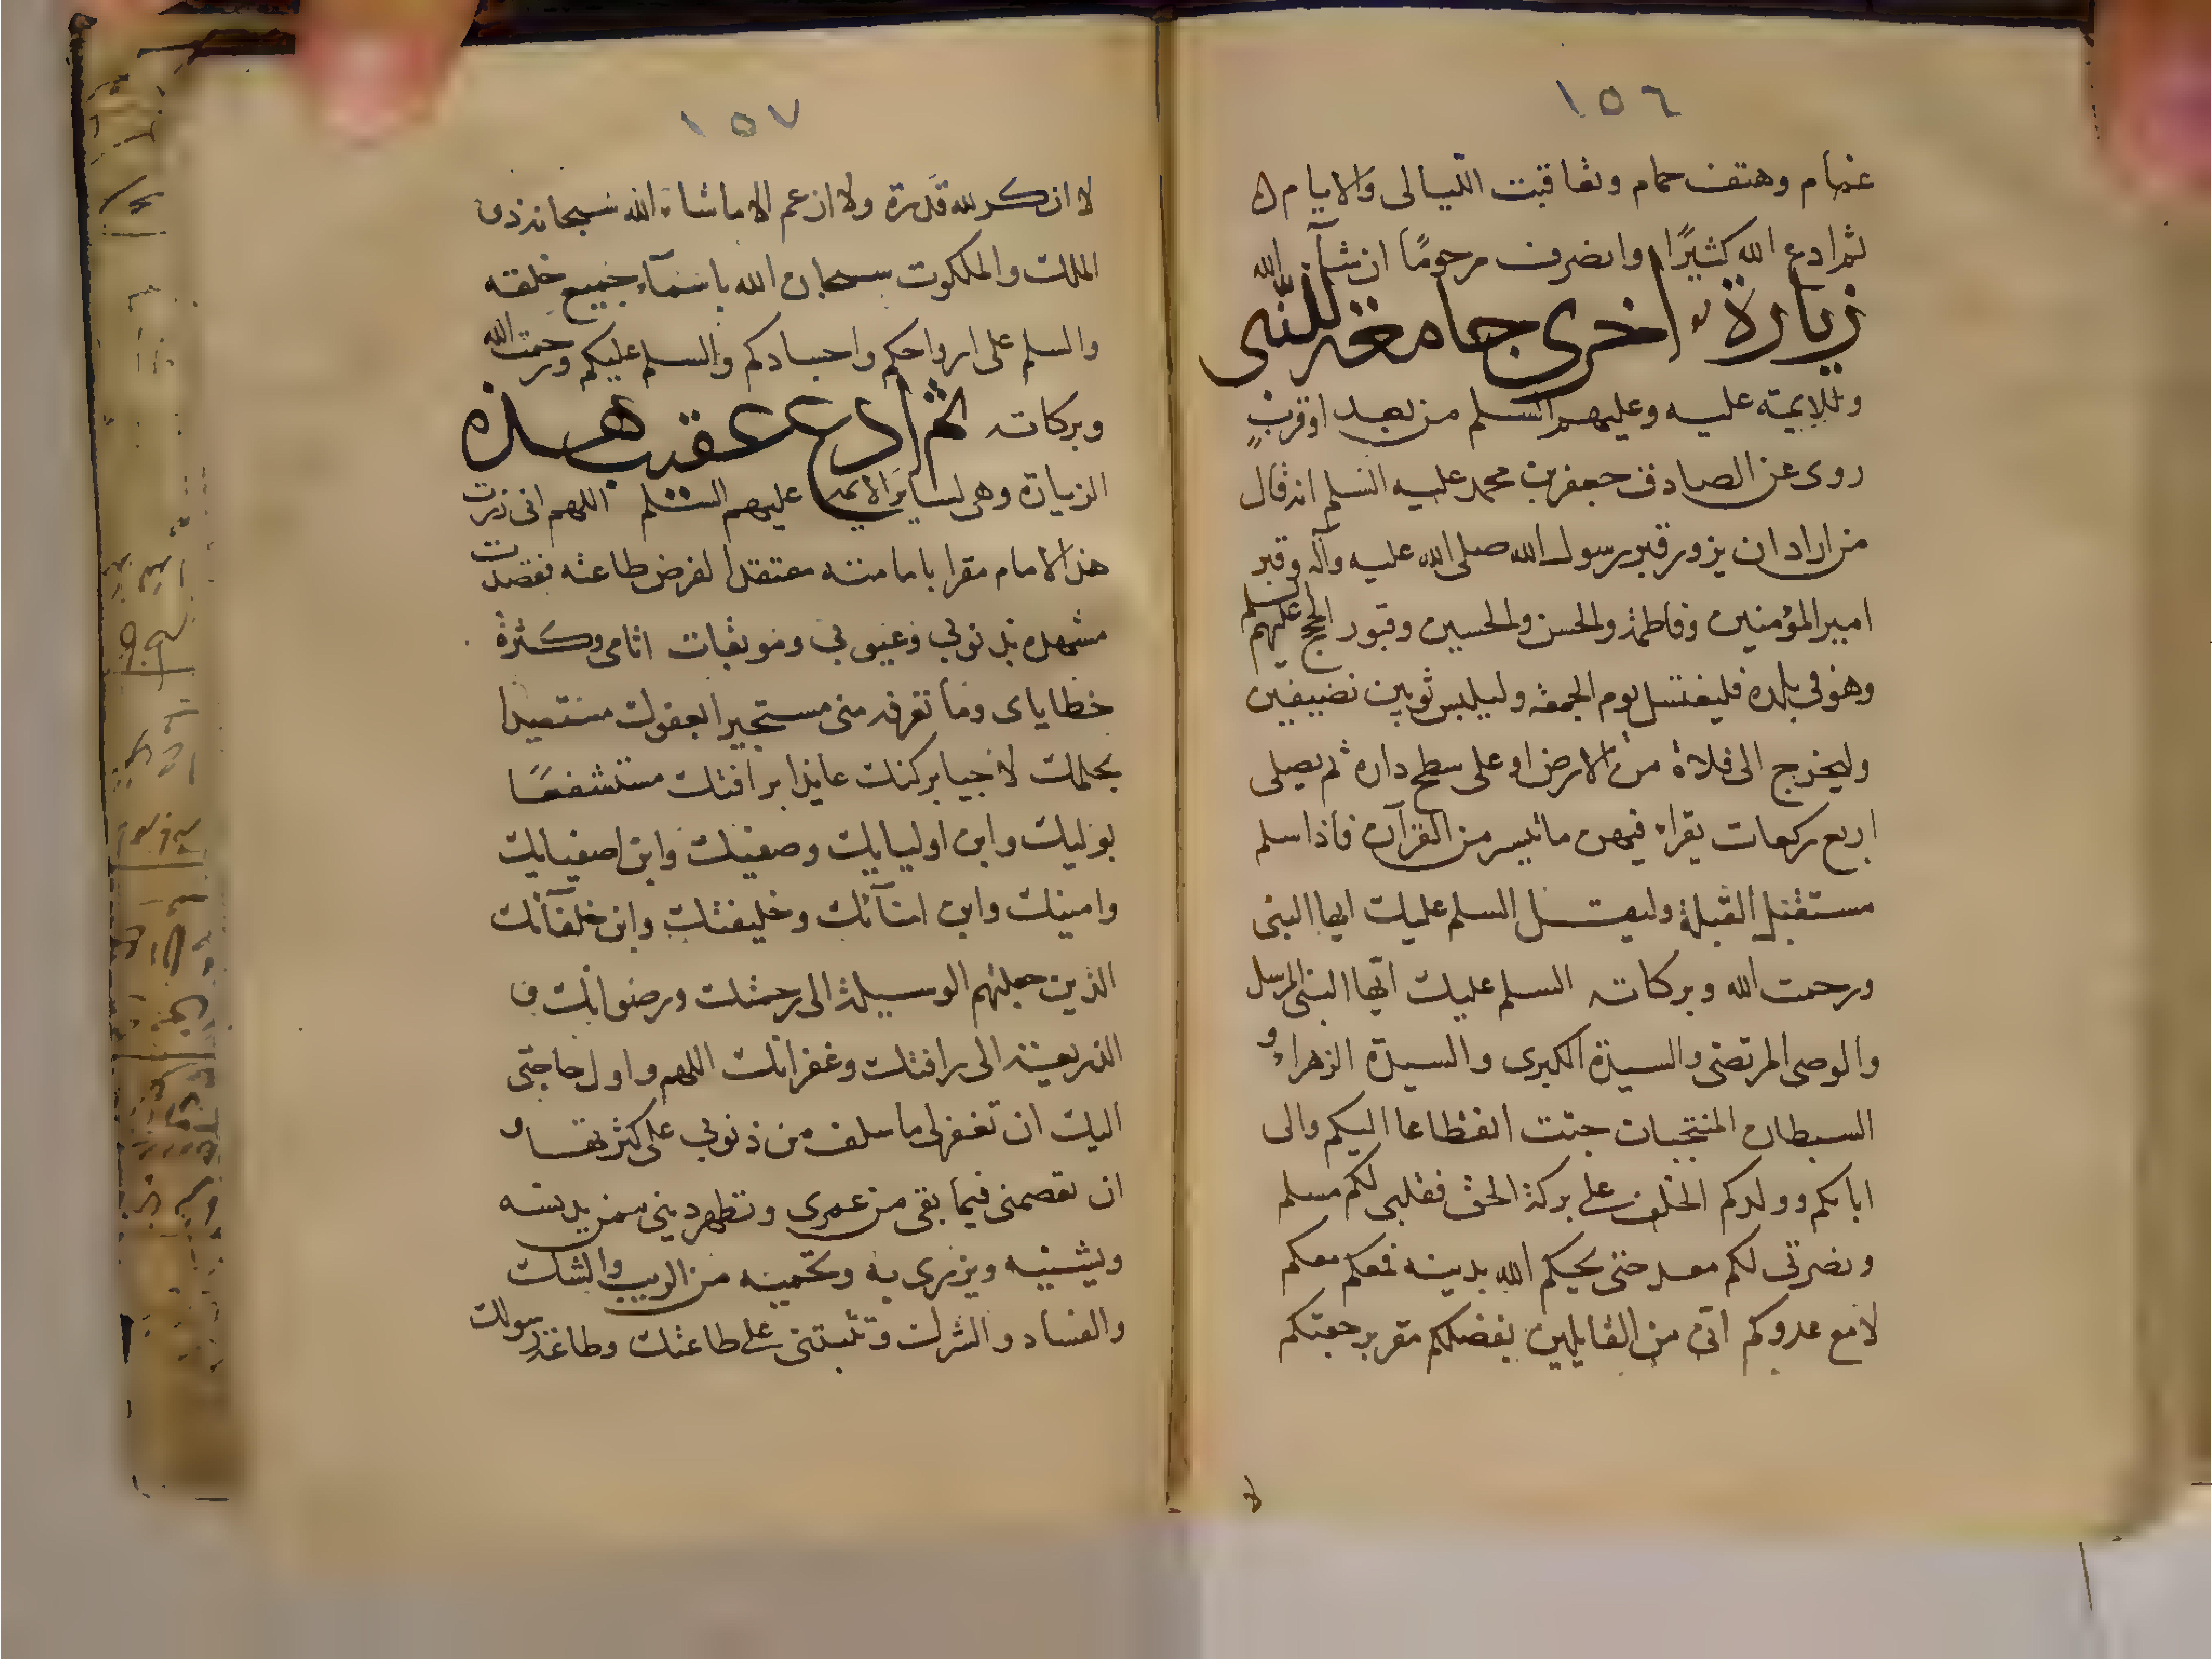 ١٥٦
غمام وهتف حمام وتعاقبت الليالى والايام
ثم ادع الله كثيرًا وانصرف مرحومًا ان شآء الله
زيارة اخرى جامعة للنبى
وللايمة عليه وعليهم السلم من بعد او قرب
روى عن الصادق جعفر بن محمد عليه السلم انه قال
من اراد ان يزور قبر رسول الله صلى الله عليه وآله وقبر
امير المؤمنين وفاطمة والحسن والحسين وقبور الحجج عليهم السلم
وهو فى بلده فليغتسل يوم الجمعة وليلبس ثوبين نضيفين
وليخرج الى فلاة من الارض او على سطح داره ثم يصلى
اربع ركعات يقراء فيهن ما تيسر من القرآن فاذا سلم
مستقبل القبلة وليقل السلم عليك ايها النبى
ورحمت الله وبركاته السلم عليك ايها النبى المرسل
والوصى المرتضى والسيدة الكبرى والسيدة الزهراء و
السبطان المنتجبان جئت انقطاعا اليكم والى
ابايكم وولدكم الخلف على بركة الحق فقلبى لكم مسلم
ونصرتى لكم معد حتى يحيكم الله بدينه فمعكم معكم
لا مع عدوكم انى من القايلين بفضلكم مقر برجعتكم
١٥٧
لا انكر لله قدرة ولا ازعم الا ما شاء الله سبحانه ذى
الملك والملكوت سبحان الله باسمآء جميع خلقه
والسلم على ارواحكم واجسادكم والسلم عليكم ورحمت الله
وبركاته ثم ادع عقيب هذه
الزيارة وهى لساير الايمة عليهم السلم اللهم انى زرت
هذا الامام مقرا بامامته معتقدا لفرض طاعته فقصدت
مشهده بذنوبى وعيوبى وموبقات اثامى وكثرة
خطاياى وما تعرفه منى مستجيرا بعفوك مستعيذا
بحلمك لاجيا بركنك عايذا برافتك مستشفعًا
بوليك وابن اوليايك وصفيك وابن اصفيايك
وامينك وابن امنآئك وخليفتك وابن خلفآئك
الذين جعلتهم الوسيلة الى رحمتك ورضوانك و
الذريعة الى رافتك وغفرانك اللهم واول حاجتى
اليك ان تغفر لى ما سلف من ذنوبى على كثرتها و
ان تعصمنى فيما بقى من عمرى وتطهر دينى ممن يدنسه
ويشينه ويزرى به وتحميه من الريب والشك
والفساد والشرك وتثبتنى على طاعتك وطاعة رسولك